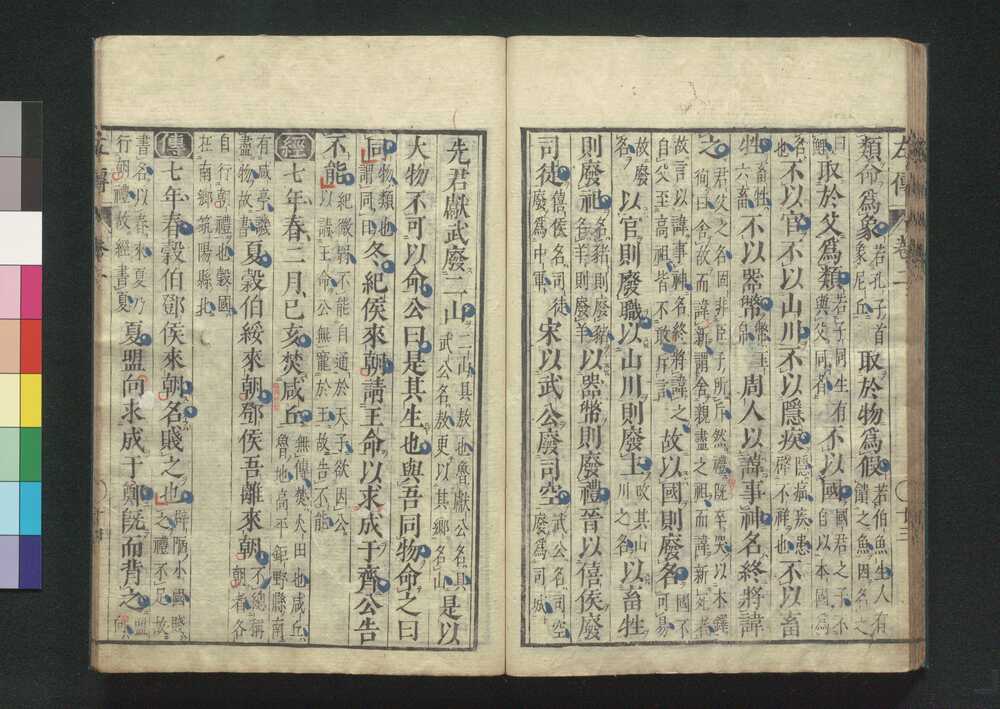 左傳 卷二 十三
類命爲象若孔子首象尼丘取於物爲假若伯魚生人有饋之魚因名之
曰鯉取於父爲類若子同生有與父同者不以國國君之子不自以本國爲
名也不以官不以山川不以隱疾隱痛疾患辟不祥也不以畜
牲畜牲六畜不以器幣幣玉帛周人以諱事神名終將諱
之君父之名固非臣子所斥然禮既卒哭以木鐸徇曰舍故而諱新謂舍親盡之祖而諱新死者
故言以諱事神名終將諱之自父至高祖皆不敢斥言故以國則廢名國不可易
故廢名以官則廢職以山川則廢主改其山川之名以畜牲
則廢祀名豬則廢豬名羊則廢羊以器幣則廢禮晉以僖侯廢
司徒僖侯名司徒廢爲中軍宋以武公廢司空武公名司空廢爲司城
先君獻武廢二山二山具敖也魯獻公名具武公名敖更以其鄉名山是以
大物不可以命公曰是其生也與吾同物命之曰
同物類也謂同日冬紀侯來朝請王命以求成于齊公告
不能紀微弱不能自通於天子欲因公以請王命公無寵於王故告不能
經七年春二月己亥焚咸丘無傳焚火田也咸丘魯地高平鉅野縣南
有咸亭譏盡物故書夏穀伯綏來朝鄧侯吾離來朝不總稱朝者各
自行朝禮也穀國在南鄉筑陽縣北
傳七年春穀伯鄧侯來朝名賤之也辟陋小國賤之禮不足故
書名以春來夏乃行朝禮故經書夏夏盟向求成于鄭既而背之盟向
左傳 卷二